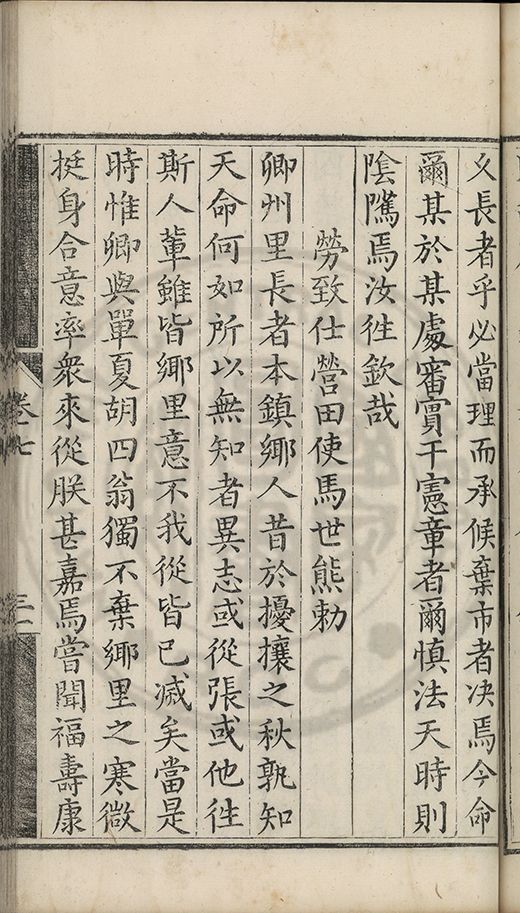 乆長者乎必當理而承候棄市者决焉今命
爾某於某處審實干憲章者爾慎法天時則
隂隲焉汝徃欽哉
勞致仕營田使馬世熊勅
卿州里長者本鎮鄉人昔於擾攘之秋孰知
天命何如所以無知者異志或從張或他徃
斯人軰雖皆鄉里意不我從皆已滅矣當是
時惟卿與單夏胡四翁獨不棄鄉里之寒微
挺身合意率衆來從朕甚嘉焉嘗聞福壽康
卷七